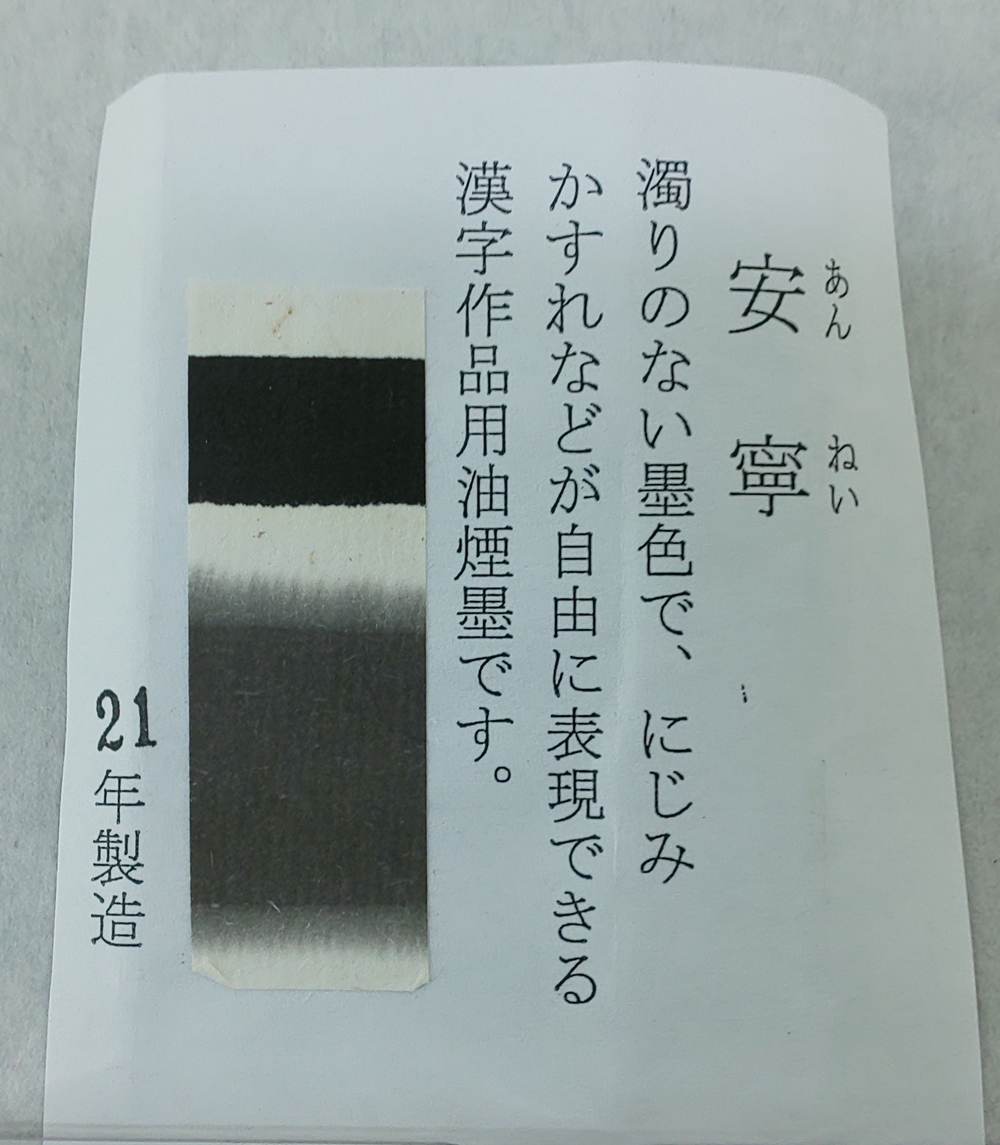 あん ねい
安寧
濁りのない墨色で、にじみ
かすれなどが自由に表現できる
漢字作品用油煙墨です。
21年製造